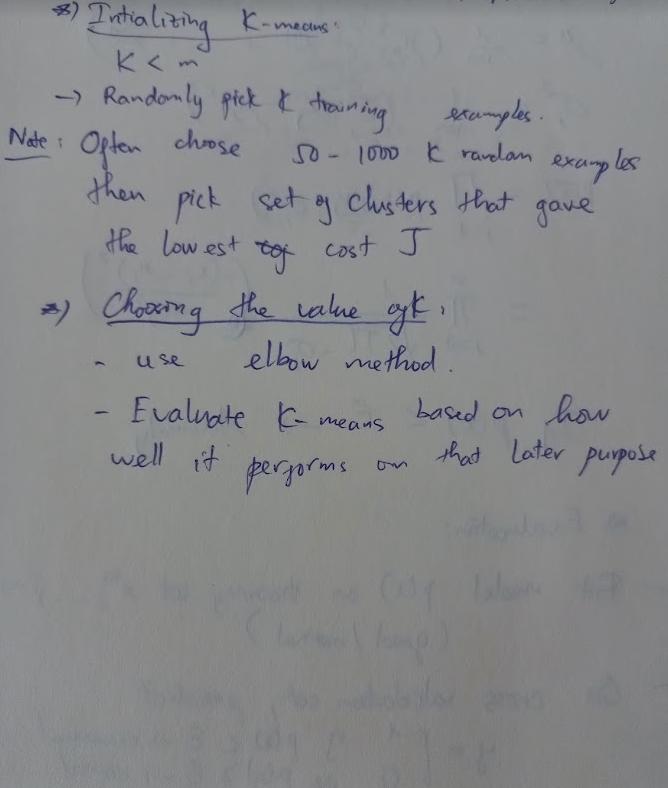 *) Intializing K-means:
K < m
→ Randomly pick K training examples.
Note: Often choose 50 - 1000 K random examples
then pick set of clusters that gave
the lowest cost J
*) Choosing the value of K:
- use elbow method.
- Evaluate K-means based on how
well it performs on that later purpose